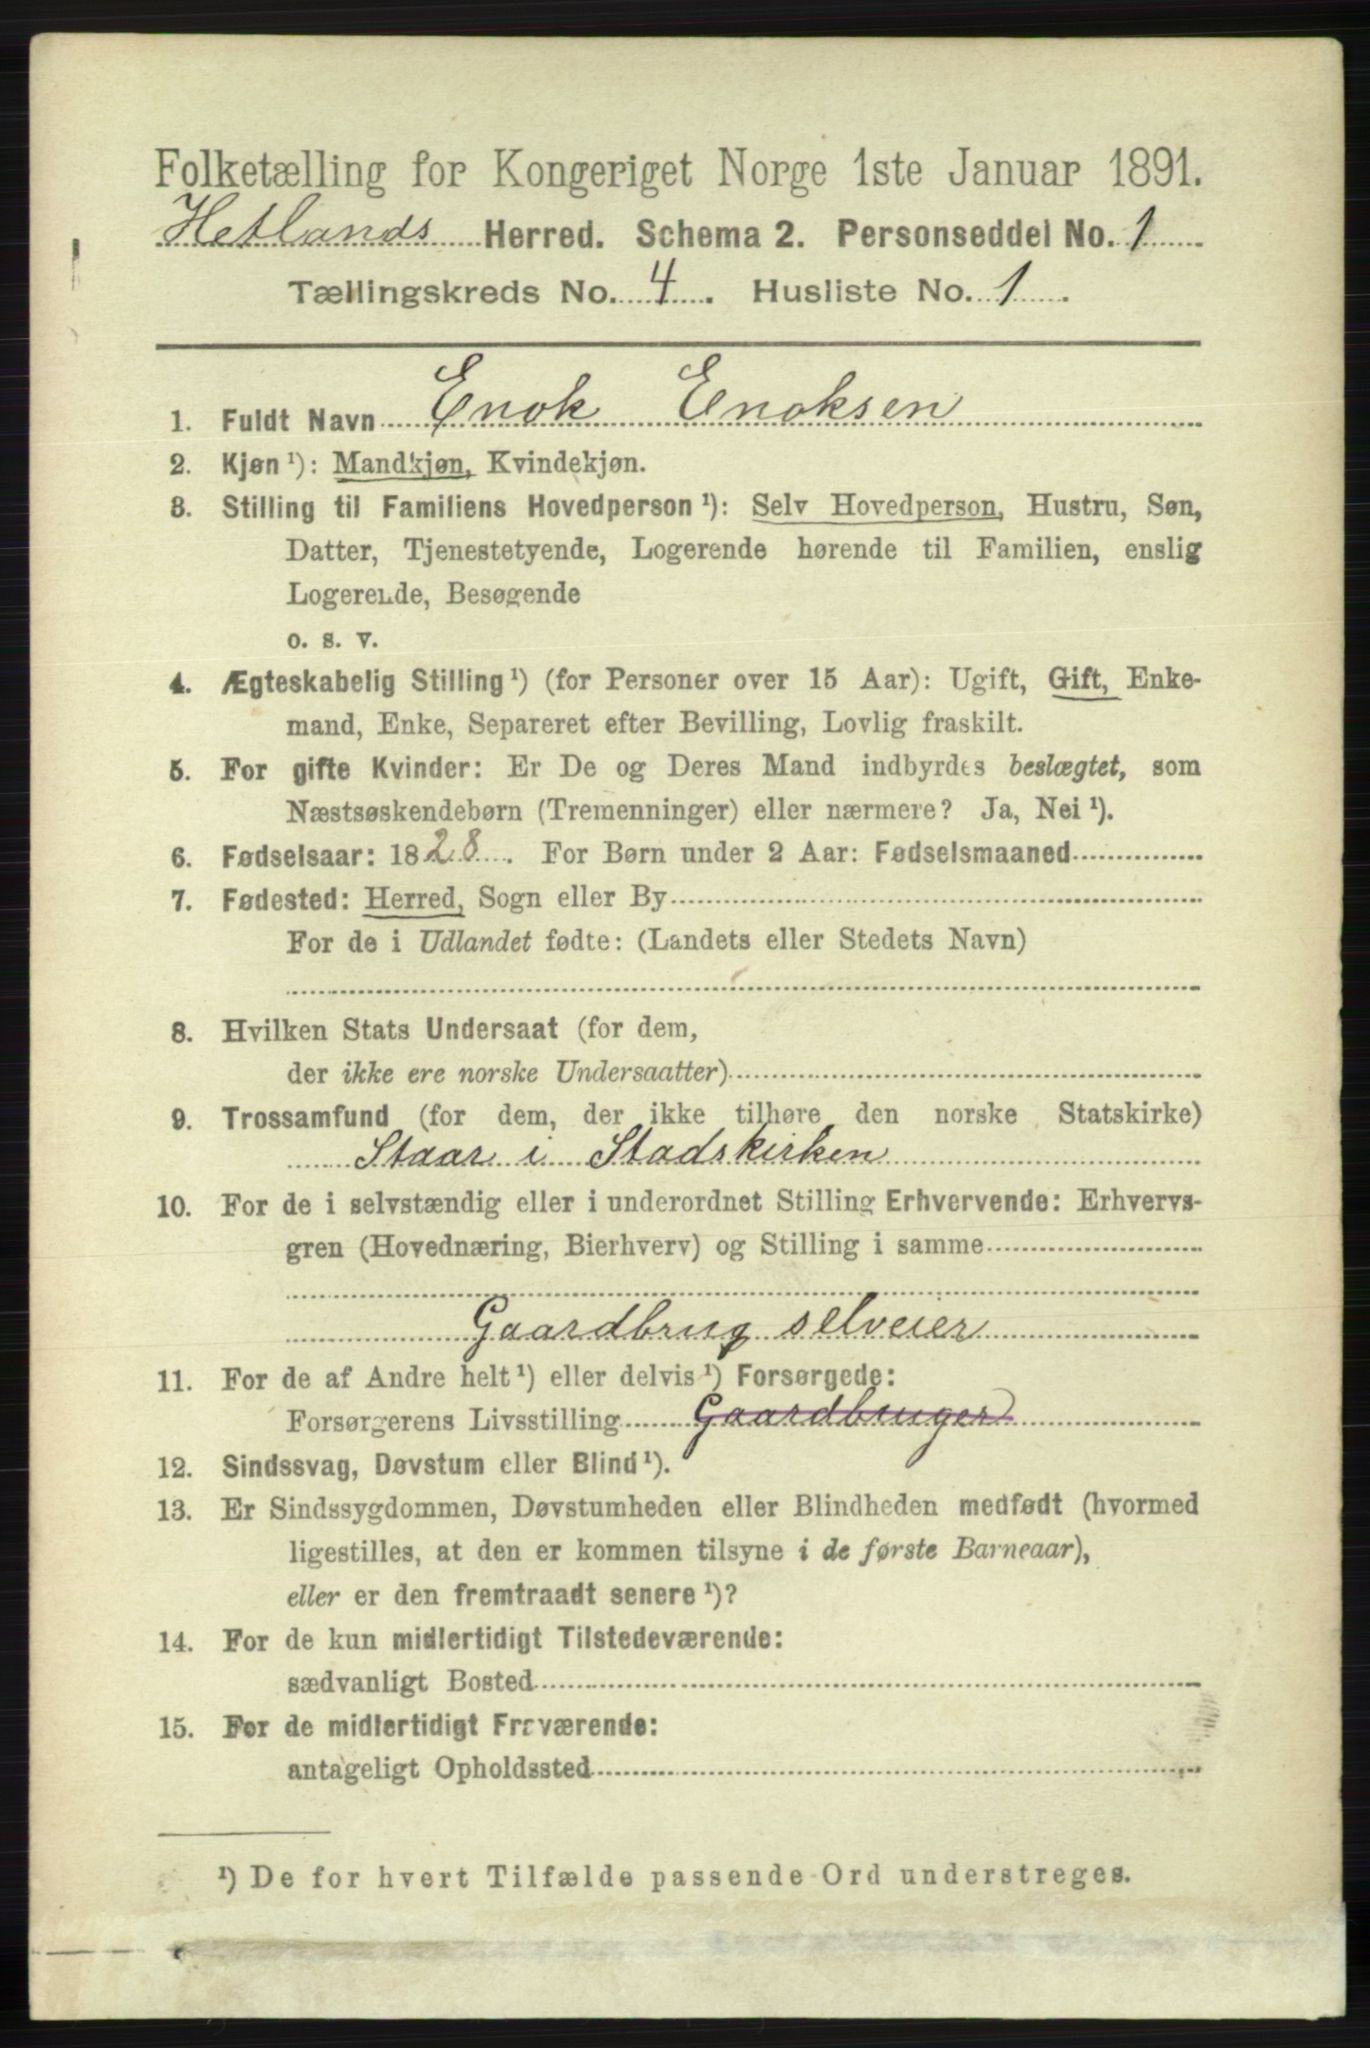 Folketælling for Kongeriget Norge 1ste Januar 1891.
Hetlands Herred. Schema 2. Personseddel No. 1
Tællingskreds No. 4. Husliste No. 1.
1. Fuldt Navn Enok Enoksen
2. Kjøn ¹): Mandkjøn, Kvindekjøn.
3. Stilling til Familiens Hovedperson ¹): Selv Hovedperson, Hustru, Søn,
Datter, Tjenestetyende, Logerende hørende til Familien, enslig
Logerende, Besøgende
o. s. v.
4. Ægteskabelig Stilling ¹) (for Personer over 15 Aar): Ugift, Gift, Enke-
mand, Enke, Separeret efter Bevilling, Lovlig fraskilt.
5. For gifte Kvinder: Er De og Deres Mand indbyrdes beslægtet, som
Næstsøskendebørn (Tremenninger) eller nærmere? Ja, Nei ¹).
6. Fødselsaar: 1828. For Børn under 2 Aar: Fødselsmaaned
7. Fødested: Herred, Sogn eller By
For de i Udlandet fødte: (Landets eller Stedets Navn)
8. Hvilken Stats Undersaat (for dem,
der ikke ere norske Undersaatter)
9. Trossamfund (for dem, der ikke tilhøre den norske Statskirke)
Staar i Stadskirken
10. For de i selvstændig eller i underordnet Stilling Erhvervende: Erhvervs-
gren (Hovednæring, Bierhverv) og Stilling i samme
Gaardbrug selveier
11. For de af Andre helt ¹) eller delvis ¹) Forsørgede:
Forsørgerens Livsstilling Gaardbruger
12. Sindssvag, Døvstum eller Blind ¹).
13. Er Sindssygdommen, Døvstumheden eller Blindheden medfødt (hvormed
ligestilles, at den er kommen tilsyne i de første Barneaar),
eller er den fremtraadt senere ¹)?
14. For de kun midlertidigt Tilstedeværende:
sædvanligt Bosted
15. For de midlertidigt Fraværende:
antageligt Opholdssted
¹) De for hvert Tilfælde passende Ord understreges.